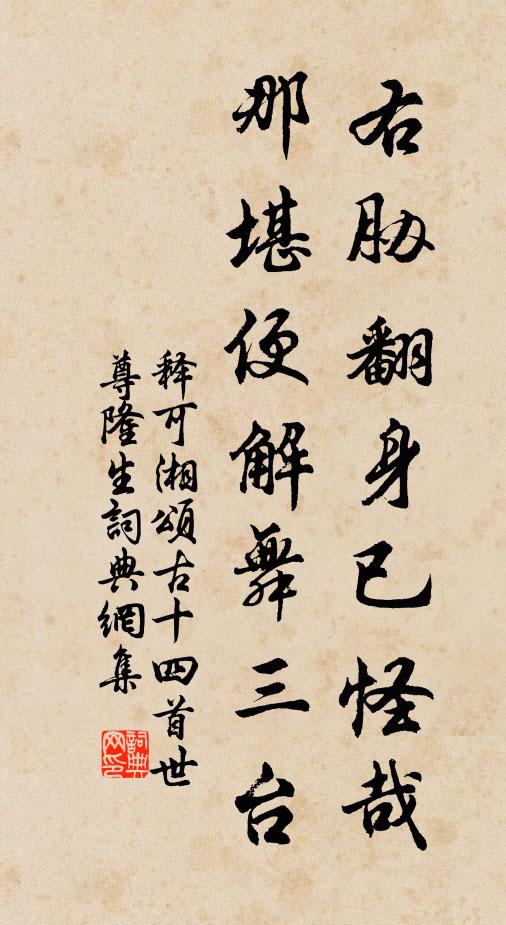 右胁翻身已怪哉
那堪便解舞三台
释可湘頌古十四首世
尊隆生詞典網集
詞典網印